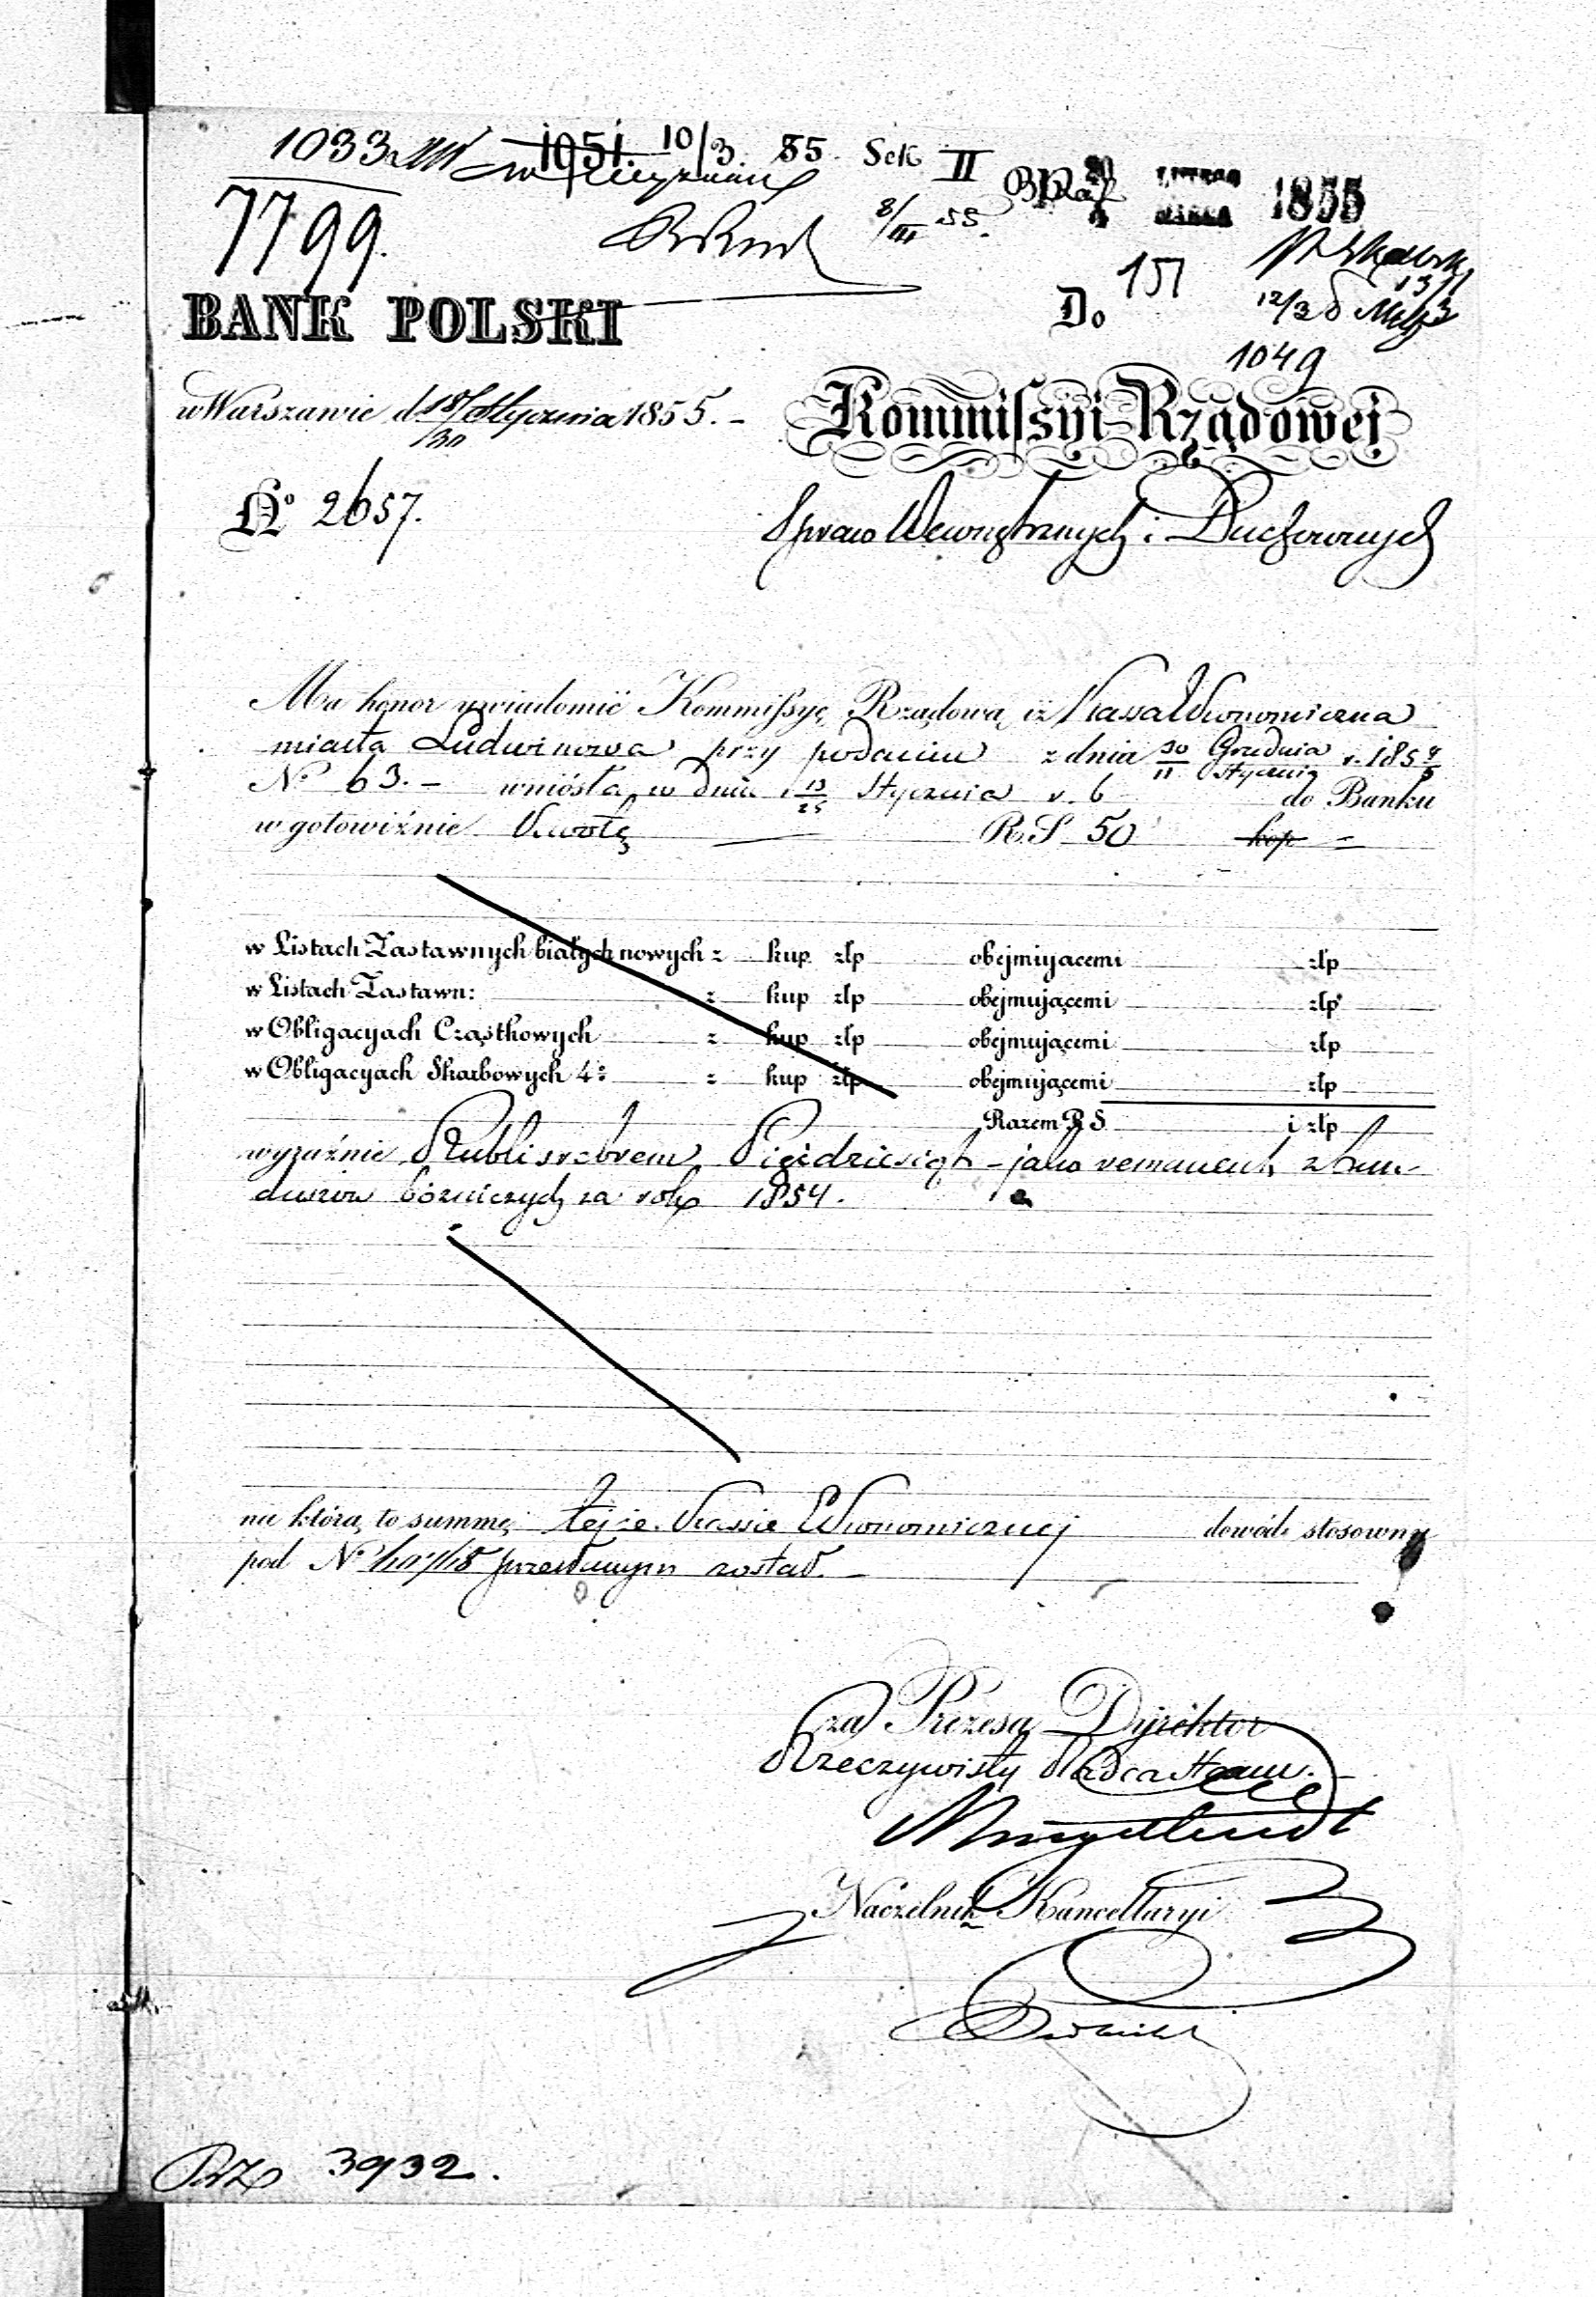 1033
1051. 10/3 55. Sek II
7799.
8/III 55.
1855
151
12/3
1049
BANK POLSKI
Do
w Warszawie d 18/30 Stycznia 1855. -
Kommissyi Rządowej
No 2657.
Spraw Wewnętrznych i Duchownych
Ma honor uwiadomić Kommissyę Rządową iż Kassa Ekonomiczna
miasta Ludwinowa przy podaniu z dnia 30/11 Grudnia/Stycznia r. 1854/5
No 63. - wniósła w dniu 13/25 Stycznia r. b do Banku
w gotowiźnie Kwotę — R. S 50 kop =
w Listach Zastawnych białych nowych z kup złp obejmującemi złp
w Listach Zastawn: z kup złp obejmującemi złp
w Obligacyach Cząstkowych z kup złp obejmującemi złp
w Obligacyach Skarbowych 4: z kup złp obejmującemi złp
Razem R S i złp
wyraźnie Rubli srebrem Pięćdziesiąt - jako remanent z fun-
duszów bóżniczych za rok 1854.
na którą to summę tejże Kassie Ekonomicznej dowód stosowny
pod No przesłanym został. -
za Prezesa Dyrektor
Rzeczywisty Radca Stanu.
Naczelnik Kancellaryi
3932.